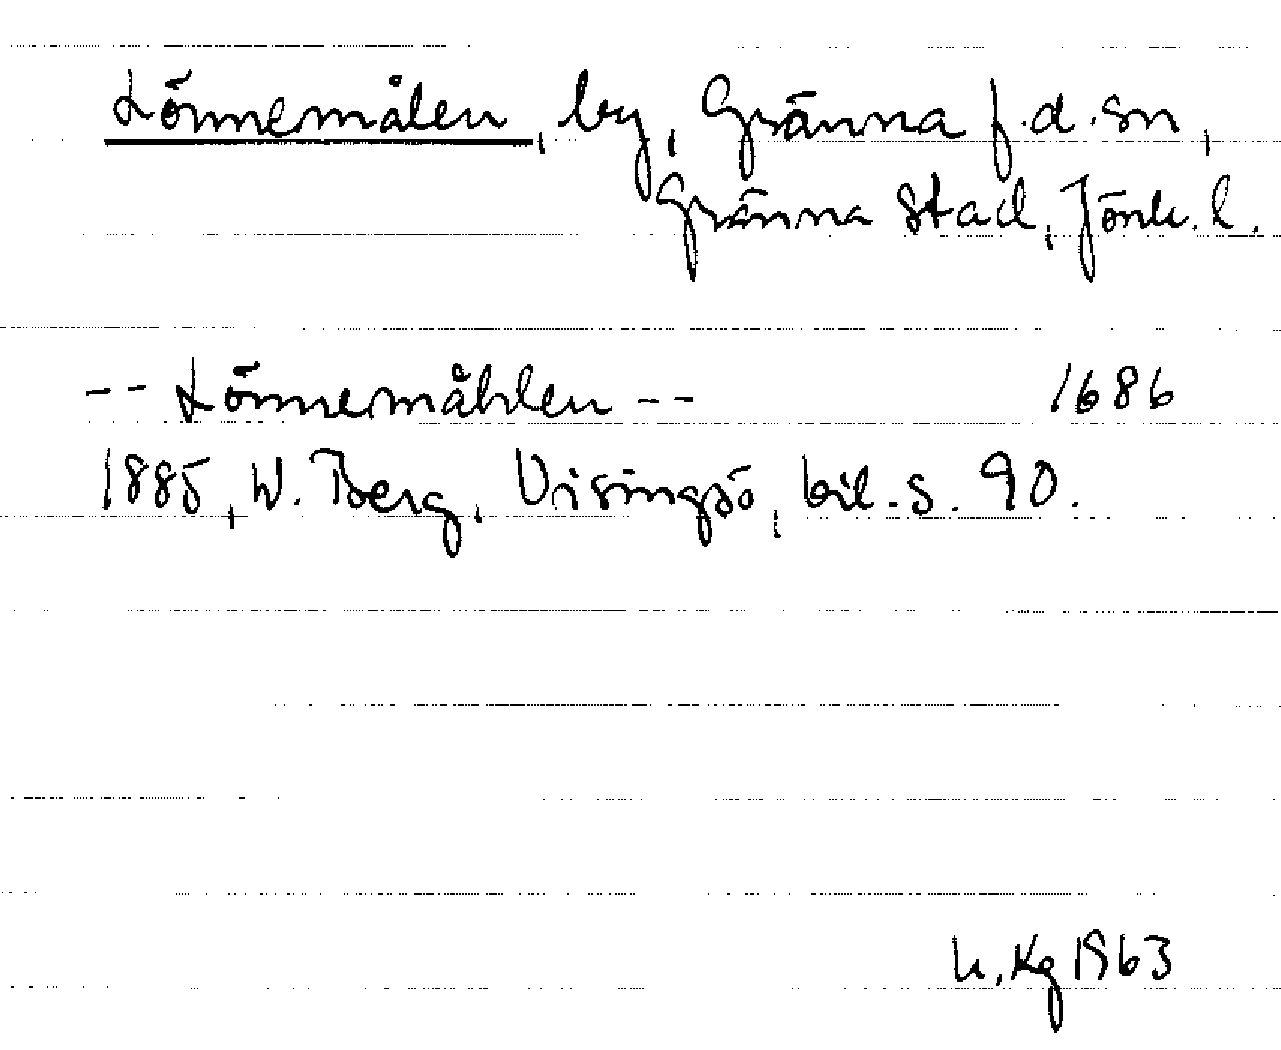 Lönnemålen, by, Gränna f.d. sn,
Gränna stad, Jönk. l.
-- Lönnemåhlen -- 1686
1885, W. Berg, Visingsö, bil. s. 90.
h.Kg 1963